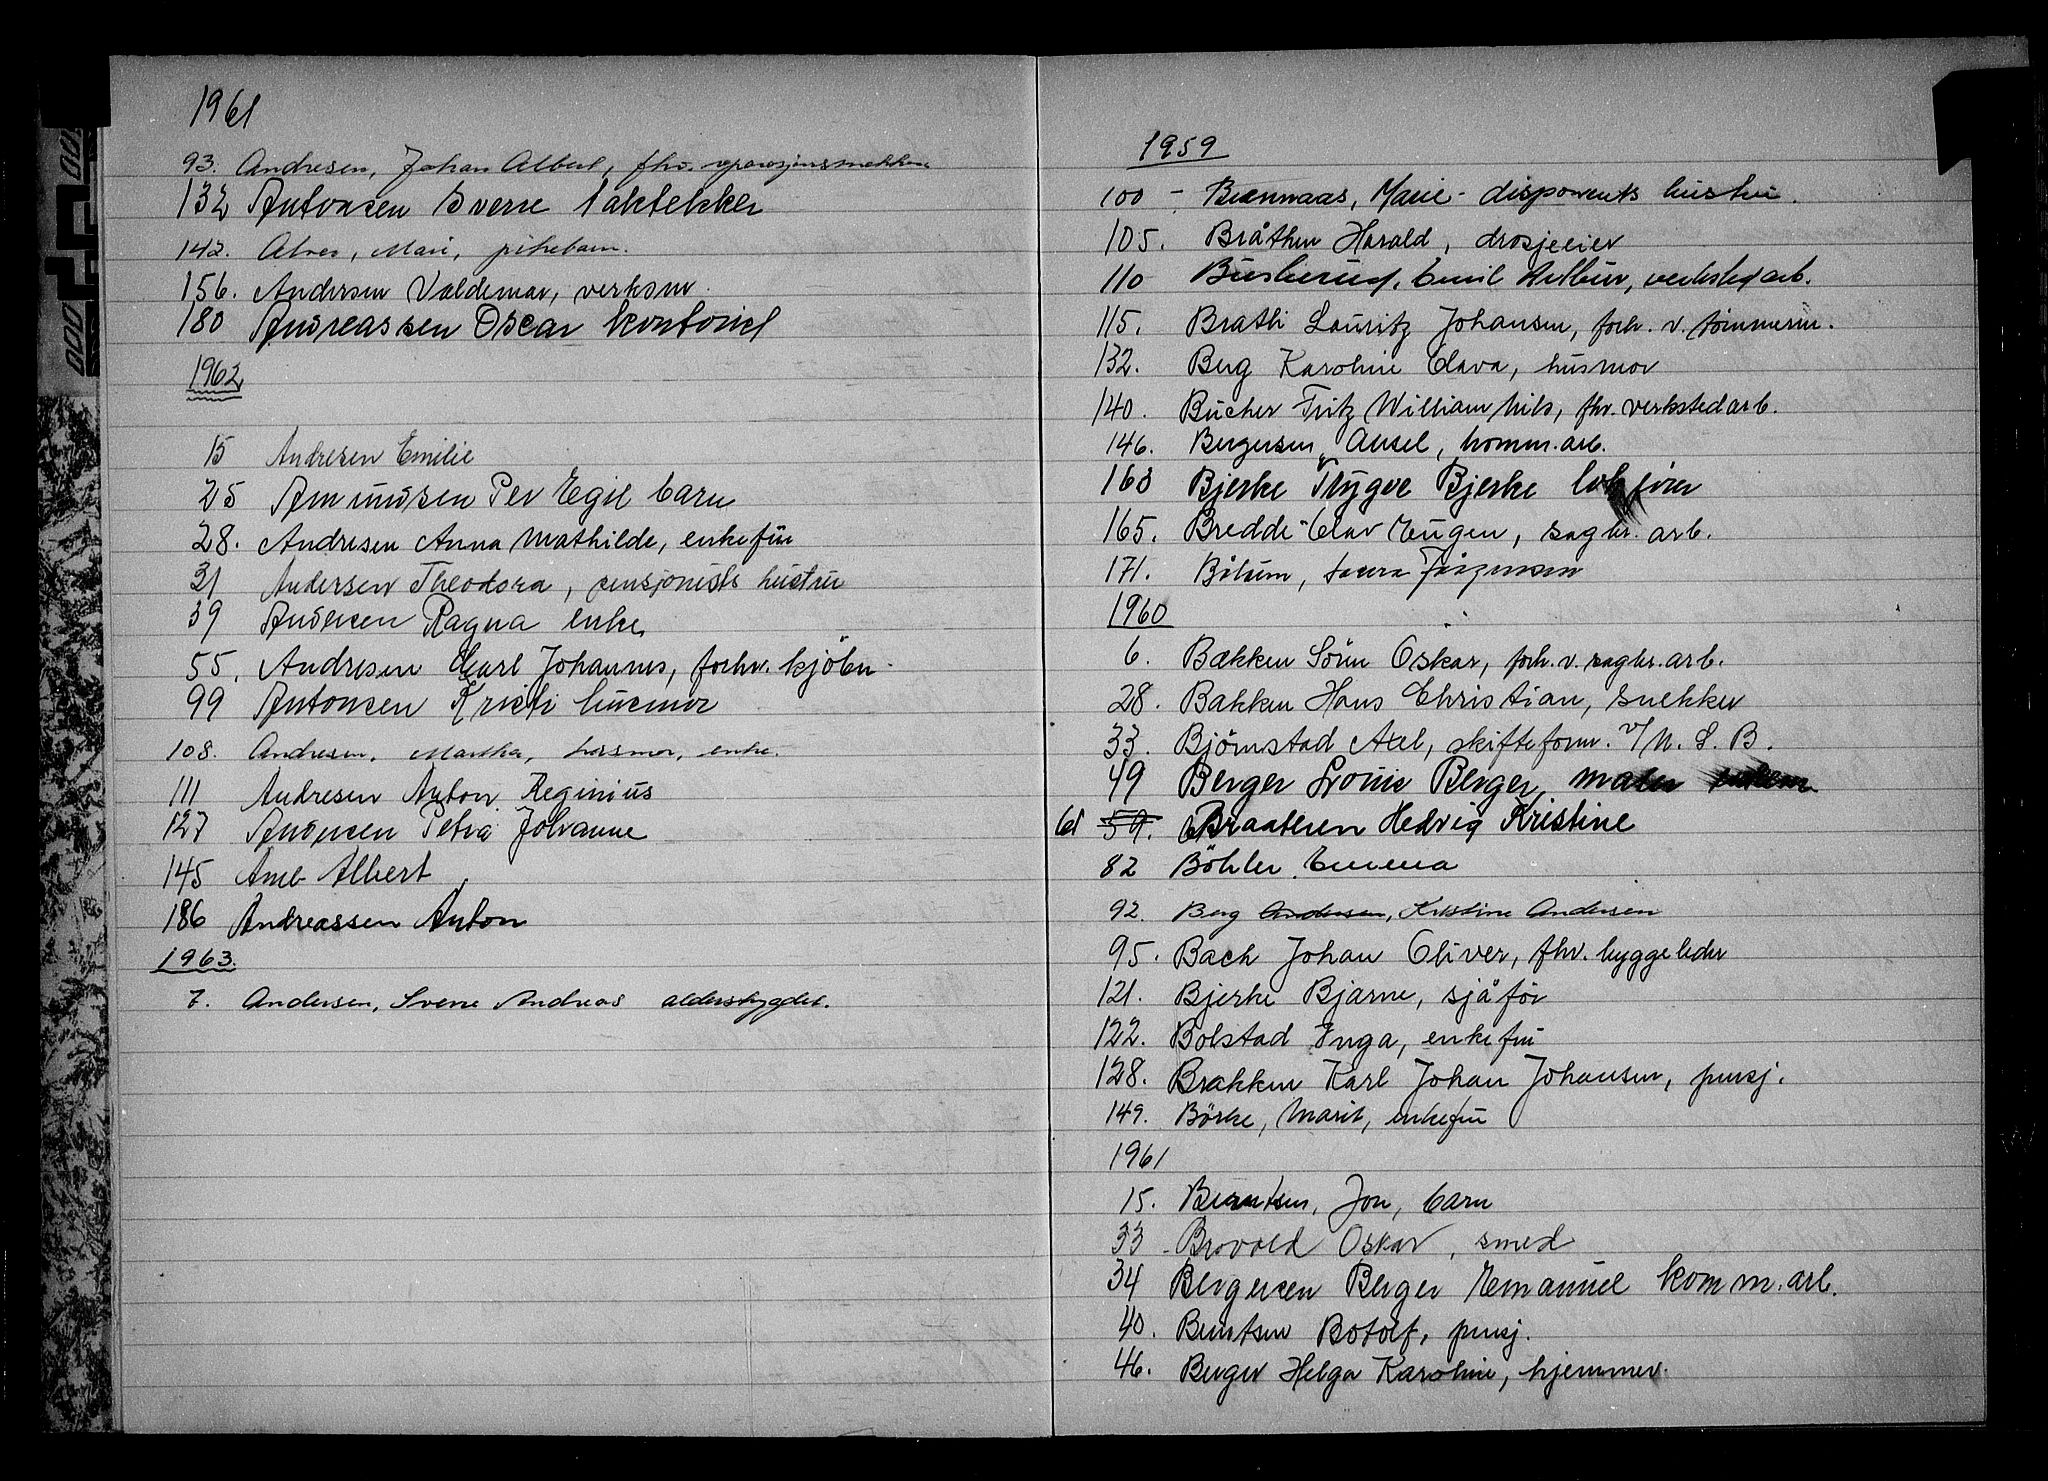 1961
93. Andresen, Johan Albert, fhv. reparasjonsmekker
132 Antonsen Sverre taktekker
142. Alver, Mari, pikebarn.
156. Andersen Valdemar, verksm.
180 Andreassen Oscar kontorist
1962
15 Andresen Emilie
25 Amundsen Per Egil barn
28. Andresen Anna Mathilde, enkefru
31 Andersen Theodora, pensjonists hustru
39 Andersen Ragna enke.
55. Andresen Carl Johannes, forhv. kjöbm.
99 Antonsen Kristi husmor
108. Andresen, Martha, husmor, enke.
111 Andresen Anton Reginius
127 Andersen Petra Johanne
145 Amb Albert
186 Andreassen Anton
1963.
7. Andersen, Sverre Andreas alderstrygdet.
1959
100 - Marie - disponents hustru.
105. Bråthen Harald, drosjeeier
110 Buskerud, Emil Arthur, verksted arb.
115. Brathi Lauritz Johansen, forh. v. tömmerm.
132. Berg Karoline Clava, husmor
140. Bücher Fritz William Nils, fhv. verksted arb.
146. Bergersen, Aksel, komm. arb.
163 Bjerke Trygve Bjerke lokförer
165. Bredde Olav Eugen, sagbr. arb.
171. Laura Jörgensen
1960
6. Bakken Sörn Oskar, forh. v. sagbr. arb.
28. Bakken Hans Christian, snekker
33. Björnstad Axel, skifteform. v/N. S. B.
49 Berger Lovise Berger, maler
61 59. Braathen Hedvig Kristine
82 Böhler Emma
92. Berg Andersen, Kristine Andersen
95. Bach Johan Oliver, fhv. byggeleder
121. Bjerke Bjarne, sjåför
122. Bolstad Inga, enkefru
128. Brakken Karl Johan Johansen, pensj.
149. Börke, Marit, enkefru
1961
15. Berntsen, Jon, barn
33 - Brovold Oskar, smed
34 Bergersen Birger Emanuel komm. arb.
40. Berntsen Botolf, pensj.
46. Berger Helga Karoline, hjemmev.